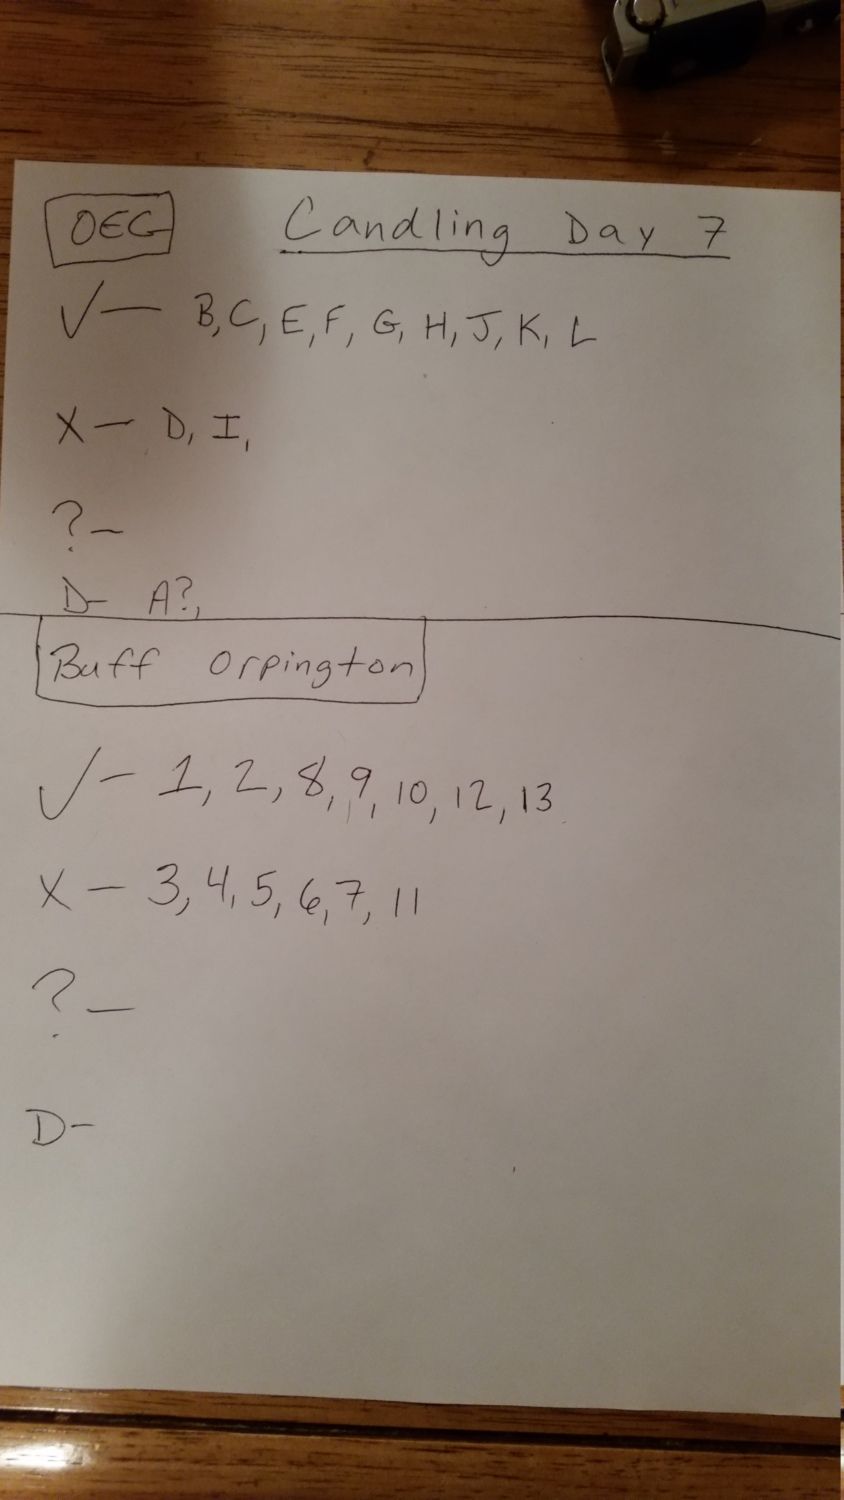 OEG Candling Day 7
✓— B, C, E, F, G, H, J, K, L
X— D, I,
?—
D- A?,
Buff Orpington
✓— 1, 2, 8, 9, 10, 12, 13
X— 3, 4, 5, 6, 7, 11
?—
D-